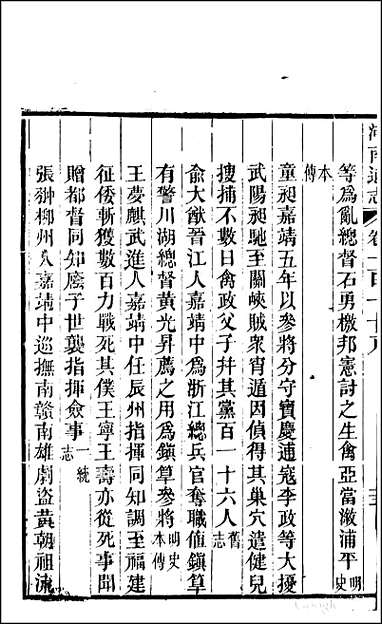 湖南通志 卷一百十
等爲亂總督石勇檄邦憲討之生禽亞當溆浦平明史
本傳
童昶嘉靖五年以參將分守寶慶通寇李政等大擾
武陽昶馳至關峽賊衆宵遁因偵得其巢穴遣健兒
搜捕不數日禽政父子幷其黨百一十六人舊志
俞大猷晉江人嘉靖中爲浙江總兵官奪職値鎭筸
有警川湖總督黃光昇薦之用爲鎭筸參將明史本傳
王夢麒武進人嘉靖中任辰州指揮同知調至福建
征倭斬獲數百力戰死其僕王寧王壽亦從死事聞
贈都督同知廕子世襲指揮僉事一統志
張翀柳州人嘉靖中巡撫南贛南雄劇盜黃朝祖流